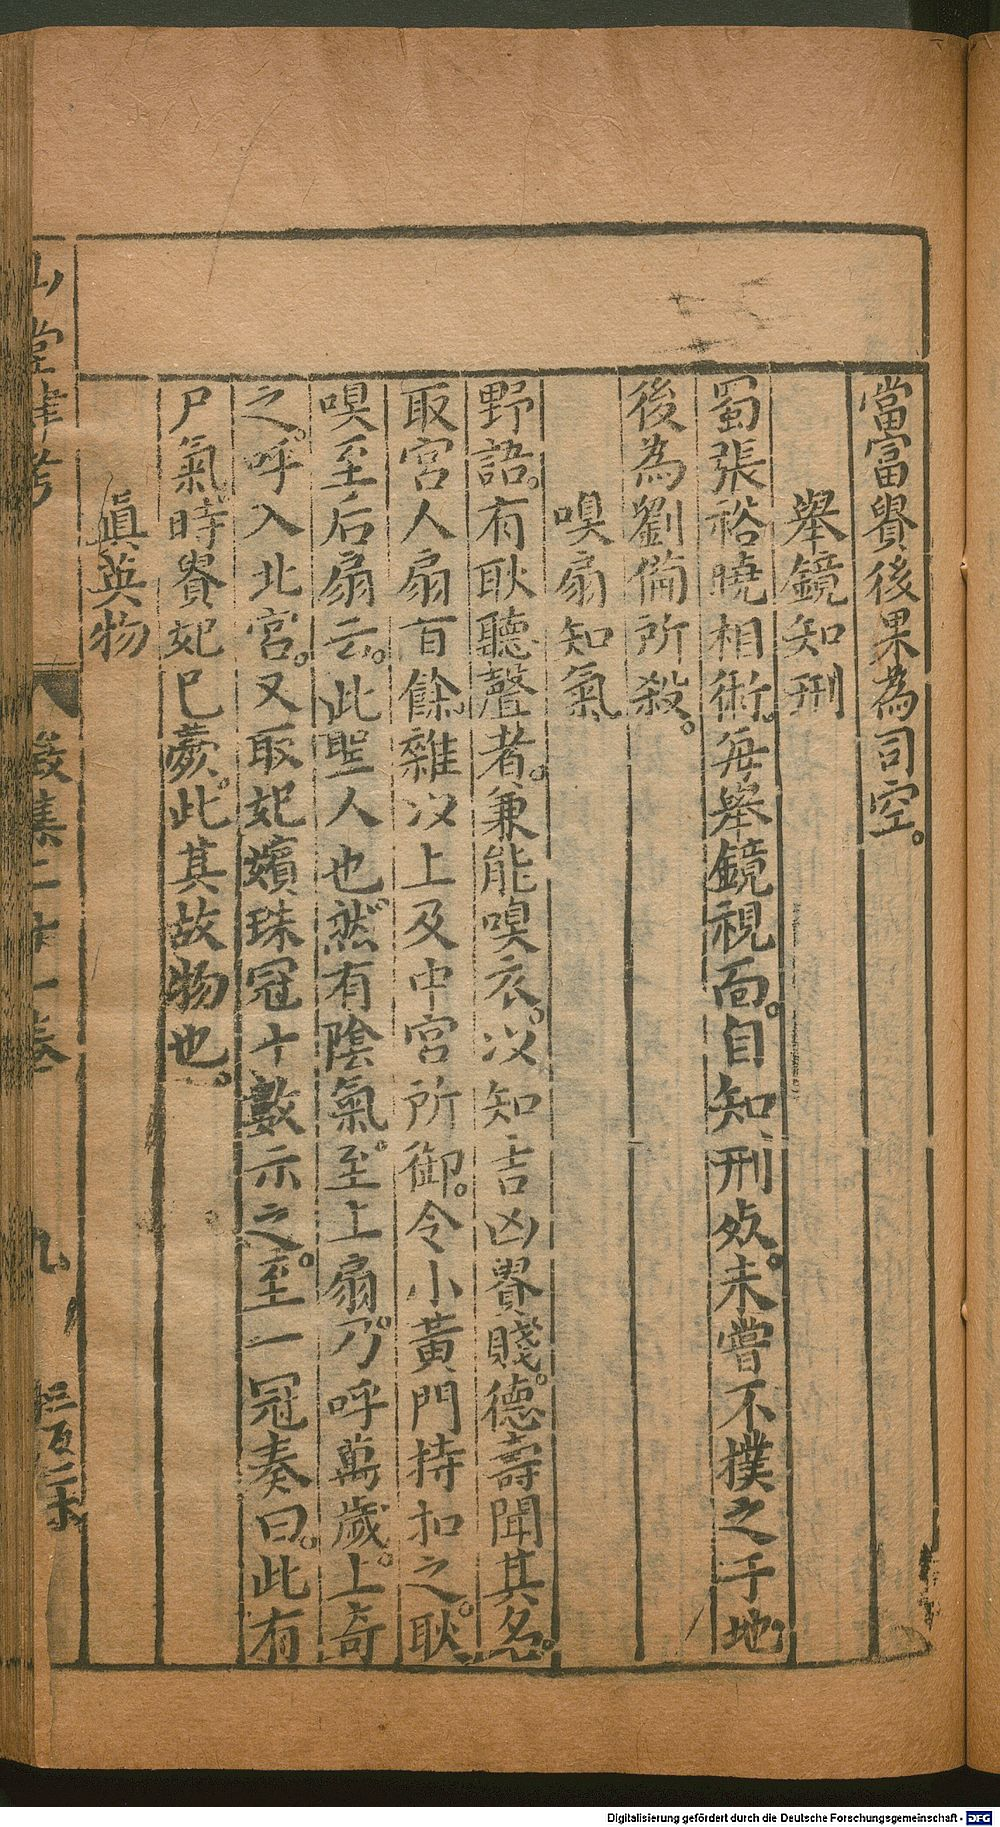 當富貴後果為司空。
舉鏡知刑
蜀張裕曉相術。每舉鏡視面。自知刑死。未嘗不撲之于地。
後為劉備所殺。
嗅扇知氣
野語。有耿聽聲者。兼能嗅衣。以知吉凶貴賤。德壽聞其名。
取宮人扇百餘。雜以上及中宮所御。令小黃門持扣之。耿
嗅至后扇云。此聖人也。然有陰氣。至上扇。乃呼萬歲。上奇
之。呼入北宮。又取妃嬪珠冠十數示之。至一冠奏曰。此有
尸氣。時貴妃已薨。此其故物也。
真英物
山堂肆考 徵集二十一卷 九
Digitalisierung gefördert durch die Deutsche Forschungsgemeinschaft - DFG